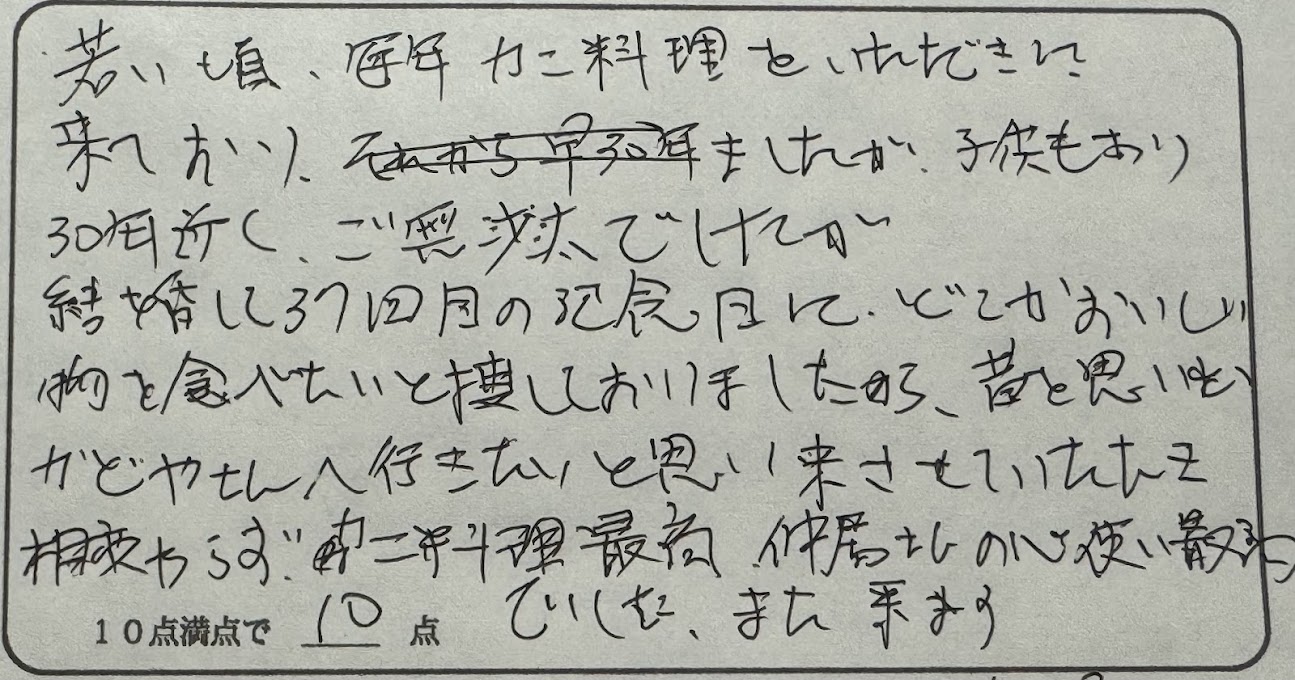 若い頃、毎年カニ料理をいただきに
来ており、それから早30年ましたが、子供もおり
30年近く、ご無沙汰でしたが
結婚して37回目の記念日に、どこかおいしい
物を食べたいと捜しておりましたら、昔を思い
かどやさんへ行きたいと思い来させていただき
相変わらず、カニ料理最高、仲居さんの心使い最高
でした、また来ます
10点満点で 10 点